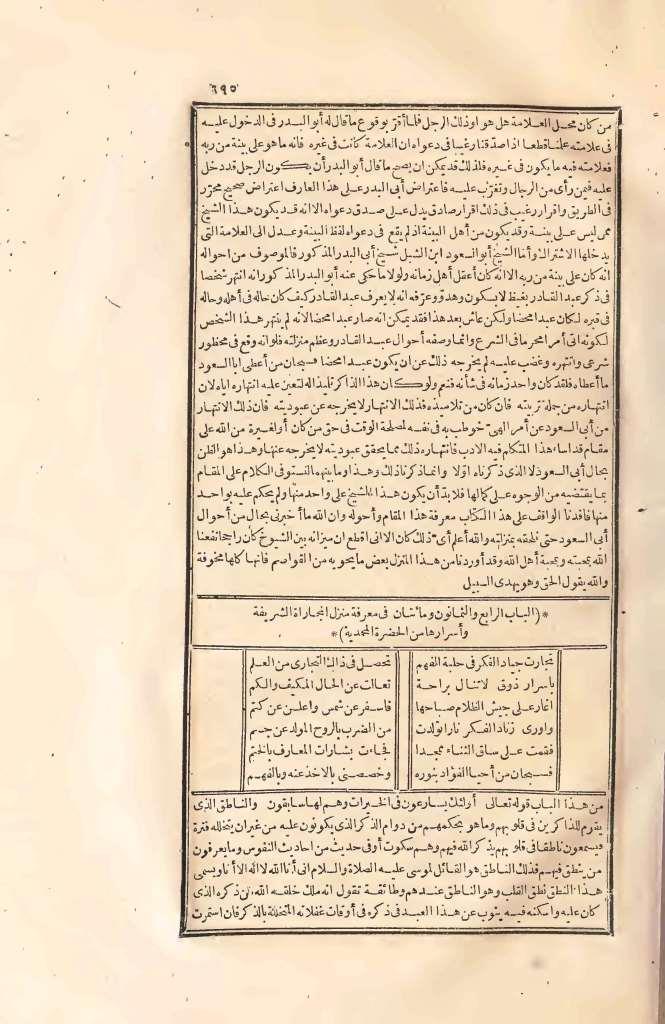 ٦٩٥
من كان محل العلامة هل هو أو ذلك الرجل فلما أقر بوقوع ما قال له أبو البدر فى الدخول عليه
فى علامته علمنا قطعا اذا صدقنا رغيبا فى دعواه ان العلامة كانت فى غيره فانه ما هو على بينة من ربه
فعلامته فيه ما يكون فى غيره فلذلك قد يمكن ان يصح ما قال أبو البدر أن يكون الرجل قد دخل
عليه فيمن رأى من الرجال وتغرب عليه فاعتراض أبى البدر على هذا العارف اعتراض صحيح محرر
فى الطريق واقرار رغيب فى ذلك اقرار صادق يدل على صدق دعواه الا انه قد يكون هذا الشيخ
ممن ليس على بينة وقد يكون من أهل البينة اذ لم يقع فى دعواه لفظ البينة وعدل الى العلامة التى
يدخلها الاشتراك وأما الشيخ أبو السعود ابن الشبل شيخ أبى البدر المذكور فالموصوف من احواله
انه كان على بينة من ربه الا انه كان أعقل أهل زمانه ولولا ما حكى عنه أبو البدر المذكور انه انتهر شخصا
فى ذكر عبد القادر بغيظ لا بسكون وهدو وعرفه انه لا يعرف عبد القادر كيف كان حاله فى أهله وحاله
فى قبره لكان عبدا محضا ولكن عاش بعد هذا فقد يمكن انه صار عبدا محضا لانه لم ينتهر هذا الشخص
لكونه اتى أمرا محرما فى الشرع وانما وصفه أحوال عبد القادر وعظم منزلته فلو انه وقع فى محظور
شرعى وانتهره وغضب عليه لم يخرجه ذلك عن ان يكون عبدا محضا فسبحان من أعطى ابا السعود
ما أعطاه فلقد كان واحد زمانه فى شأنه فنعم ولو كان هذا الذاكر تلميذا له لتعين عليه انتهاره اياه لان
انتهاره من جملة تربيته فان كان من تلاميذه فذلك الانتهار لا يخرجه عن عبوديته فان ذلك الانتهار
من أبى السعود عن أمر الهى خوطب به فى نفسه لمصلحة الوقت فى حق من كان أو لغيرة من الله على
مقام قد أساء هذا المتكلم فيه الادب فانتهاره ذلك مما يحقق عبوديته لا يخرجه عنها وهذا هو الظن
بحال أبى السعود لا الذى ذكرناه اولا وانما ذكرنا ذلك وهذا وما بينهما لنستوفى الكلام على المقام
بما يقتضيه من الوجوه على كمالها فلا بد أن يكون هذا الشيخ على واحد منها ولم يحكم عليه بواحد
منها فأفدنا الواقف على هذا الكتاب معرفة هذا المقام وأحوله وان الله ما أخبرنى بحال من أحوال
أبى السعود حتى نلحقه بمنزلته والله أعلم أى ذلك كان الا انى اقطع ان ميزانه بين الشيوخ كان راجحا نفعنا
الله بمحبته وبمحبة أهل الله وقد أوردنا من هذا المنزل بعض ما يحويه من القواصم فانها كلها مخوفة
والله يقول الحق وهو يهدى السبيل
*(الباب الرابع والثمانون ومائتان فى معرفة منزل المجاراة الشريفة
وأسرارها من الحضرة المحمدية)*
تجارت جياد الفكر فى حلبة الفهم تحصل فى ذاك التجارى من العلم
بأسرار ذوق لا تنال براحة تعالت عن الحال المكيف والكم
اغار على جيش الظلام صباحها فاسفر عن شمس واعلن عن كتم
واورى زناد الفكر نارا تولدت من الضرب بالروح المولد عن جسم
فقمت على ساق الثناء ممجدا فجاءت بشارات المعارف بالختم
فسبحان من أحيا الفؤاد بنوره وخصصنى بالاخذ عنه وبالفهم
من هذا الباب قوله تعالى أولئك يسارعون فى الخيرات وهم لها سابقون والناطق الذى
يقوم للذاكرين فى قلوبهم وما هو بحكمهم من دوام الذكر الذى يكونون عليه من غير ان يتخلله فترة
فيسمعون ناطقا فى قلوبهم يذكر الله فيهم وهم سكوت أو فى حديث من احاديث النفوس وما يعرفون
من ينطق فيهم فذلك الناطق هو القائل لموسى عليه الصلاة والسلام انى أنا الله لا اله الا أنا ويسمى
هذا النطق نطق القلب وهو الناطق عندهم وطائفة تقول انه ملك خلقه الله من ذكره الذى
كان عليه واسكنه فيه ينوب عن هذا العبد فى ذكره فى أوقات غفلاته المتخللة بالذكر فان استمرت